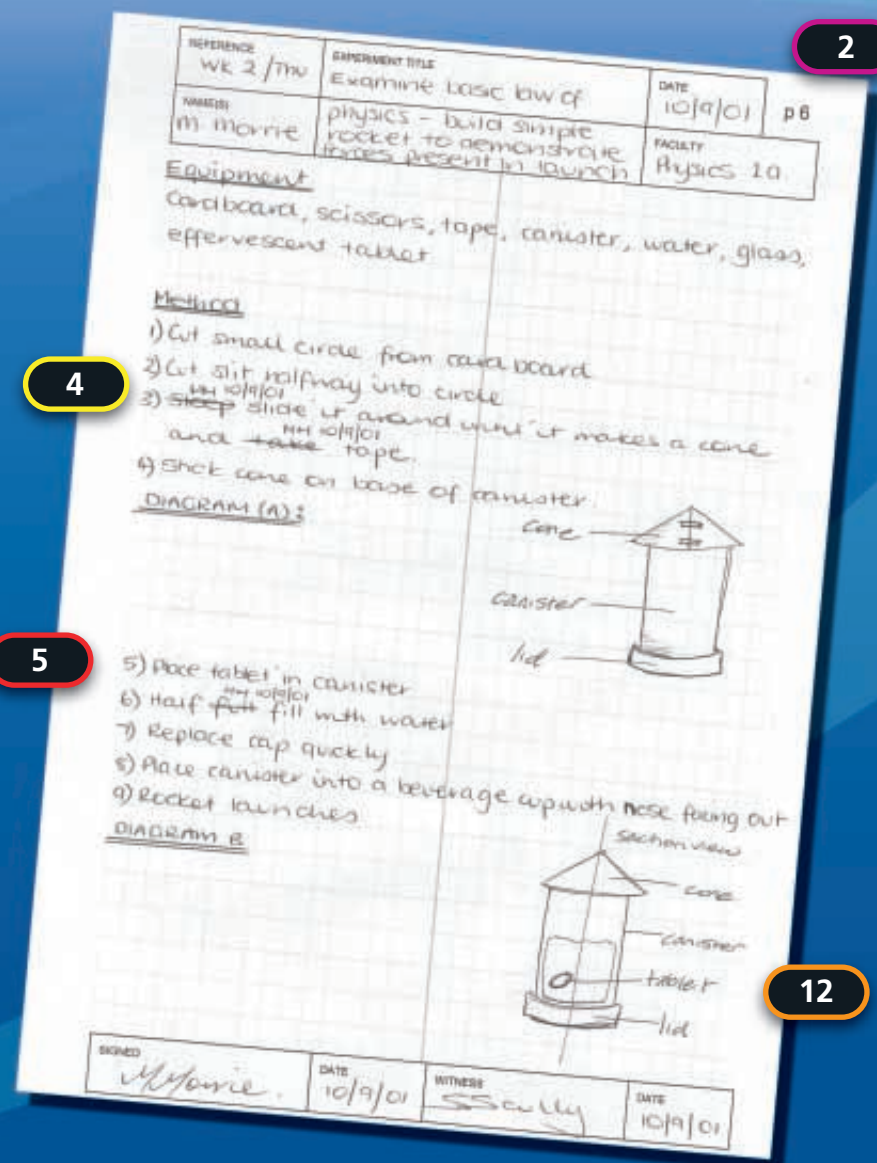 2
REFERENCE
WK 2 / Thu
EXPERIMENT TITLE
Examine basic law of
physics - build simple
rocket to demonstrate
forces present in launch
DATE
10/9/01
p 6
NAME(S)
M Morrie
FACULTY
Physics 1a.
Equipment
Cardboard, scissors, tape, canister, water, glass,
effervescent tablet
Method
1) Cut small circle from cardboard
4
2) Cut slit halfway into circle
MM 10/9/01
3) slide it around until it makes a cone
MM 10/9/01
and take tape.
4) Stick cone on base of canister.
DIAGRAM (A):
cone
canister
lid
5
5) Place tablet in canister
MM 10/9/01
6) Half full fill with water
7) Replace cap quickly
8) Place canister into a beverage cup with nose facing out
9) Rocket launches
DIAGRAM B
section view
cone
canister
tablet
12
lid
SIGNED
MMorrie.
DATE
10/9/01
WITNESS
SScully
DATE
10/9/01